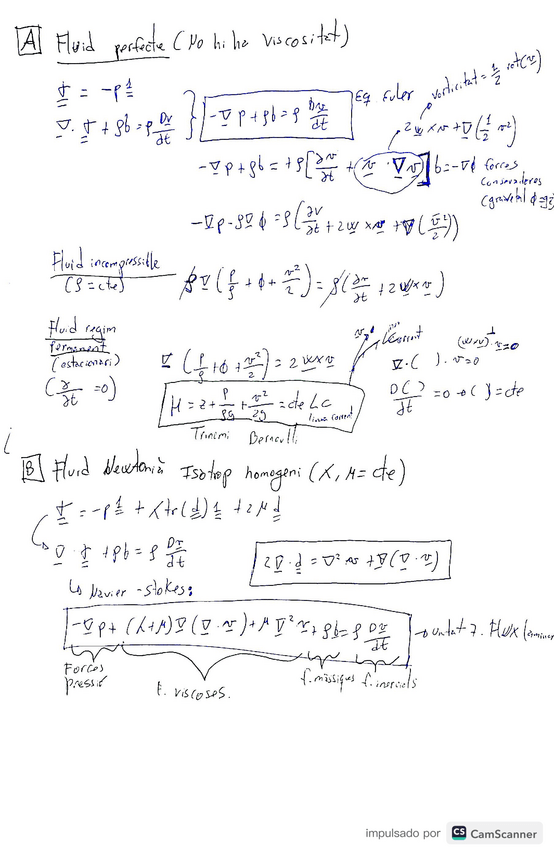 A Fluid perfecte (No hi ha viscositat)
σ = -p 1
∇ · σ + ρb = ρ Dv/dt
-∇p + ρb = ρ Dv/dt Eq Euler
vorticitat = 1/2 rot(v)
2w × v + ∇(1/2 v²)
-∇p + ρb = +ρ[∂v/∂t + v · ∇v] b = -∇ϕ forces
conservadores
-∇p - ρ∇ϕ = ρ(∂v/∂t + 2w × v + ∇(v²/2))
Fluid incompressible
(ρ = cte)
ρ∇(p/ρ + ϕ + v²/2) = ρ(∂v/∂t + 2w × v)
Fluid regim
permanent
(estacionari)
(∂/∂t = 0)
∇(p/ρ + ϕ + v²/2) = 2w × v
(w × v) · v = 0
∇ · ( ) · v = 0
D( )/dt = 0 → ( ) = cte
H = z + p/ρg + v²/2g = cte Lc
Trinomi Bernoulli
B Fluid Newtonià Isotrop homogeni (λ, μ = cte)
σ = -p 1 + λ tr(d) 1 + 2μ d
∇ · σ + ρb = ρ Dv/dt
2∇ · d = ∇²v + ∇(∇ · v)
↳ Navier-Stokes:
-∇p + (λ+μ)∇(∇ · v) + μ∇²v + ρb = ρ Dv/dt → unitat 7.
Forces
pressió
f. viscoses.
f. màssiques f. inercials
impulsado por CS CamScanner